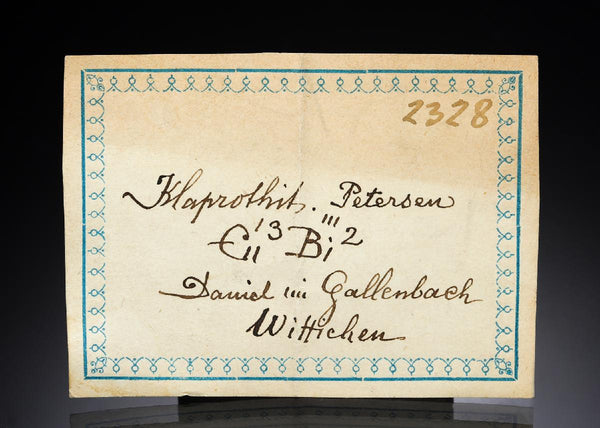 2328
Klaprothit. Petersen
Cu' 3 Bi''' 2
Daniel im Gallenbach
Wittichen